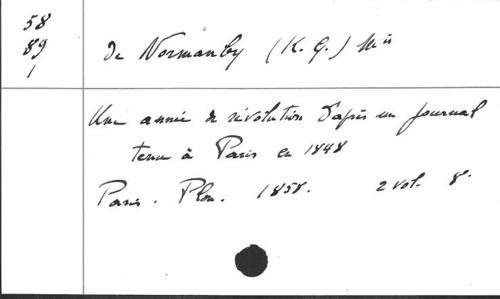 58
89
1
De Normanby (K. G.) Mis
Une année de révolution d'après un journal
tenu à Paris en 1848
Paris. Plon. 1858. 2 vol. 8°